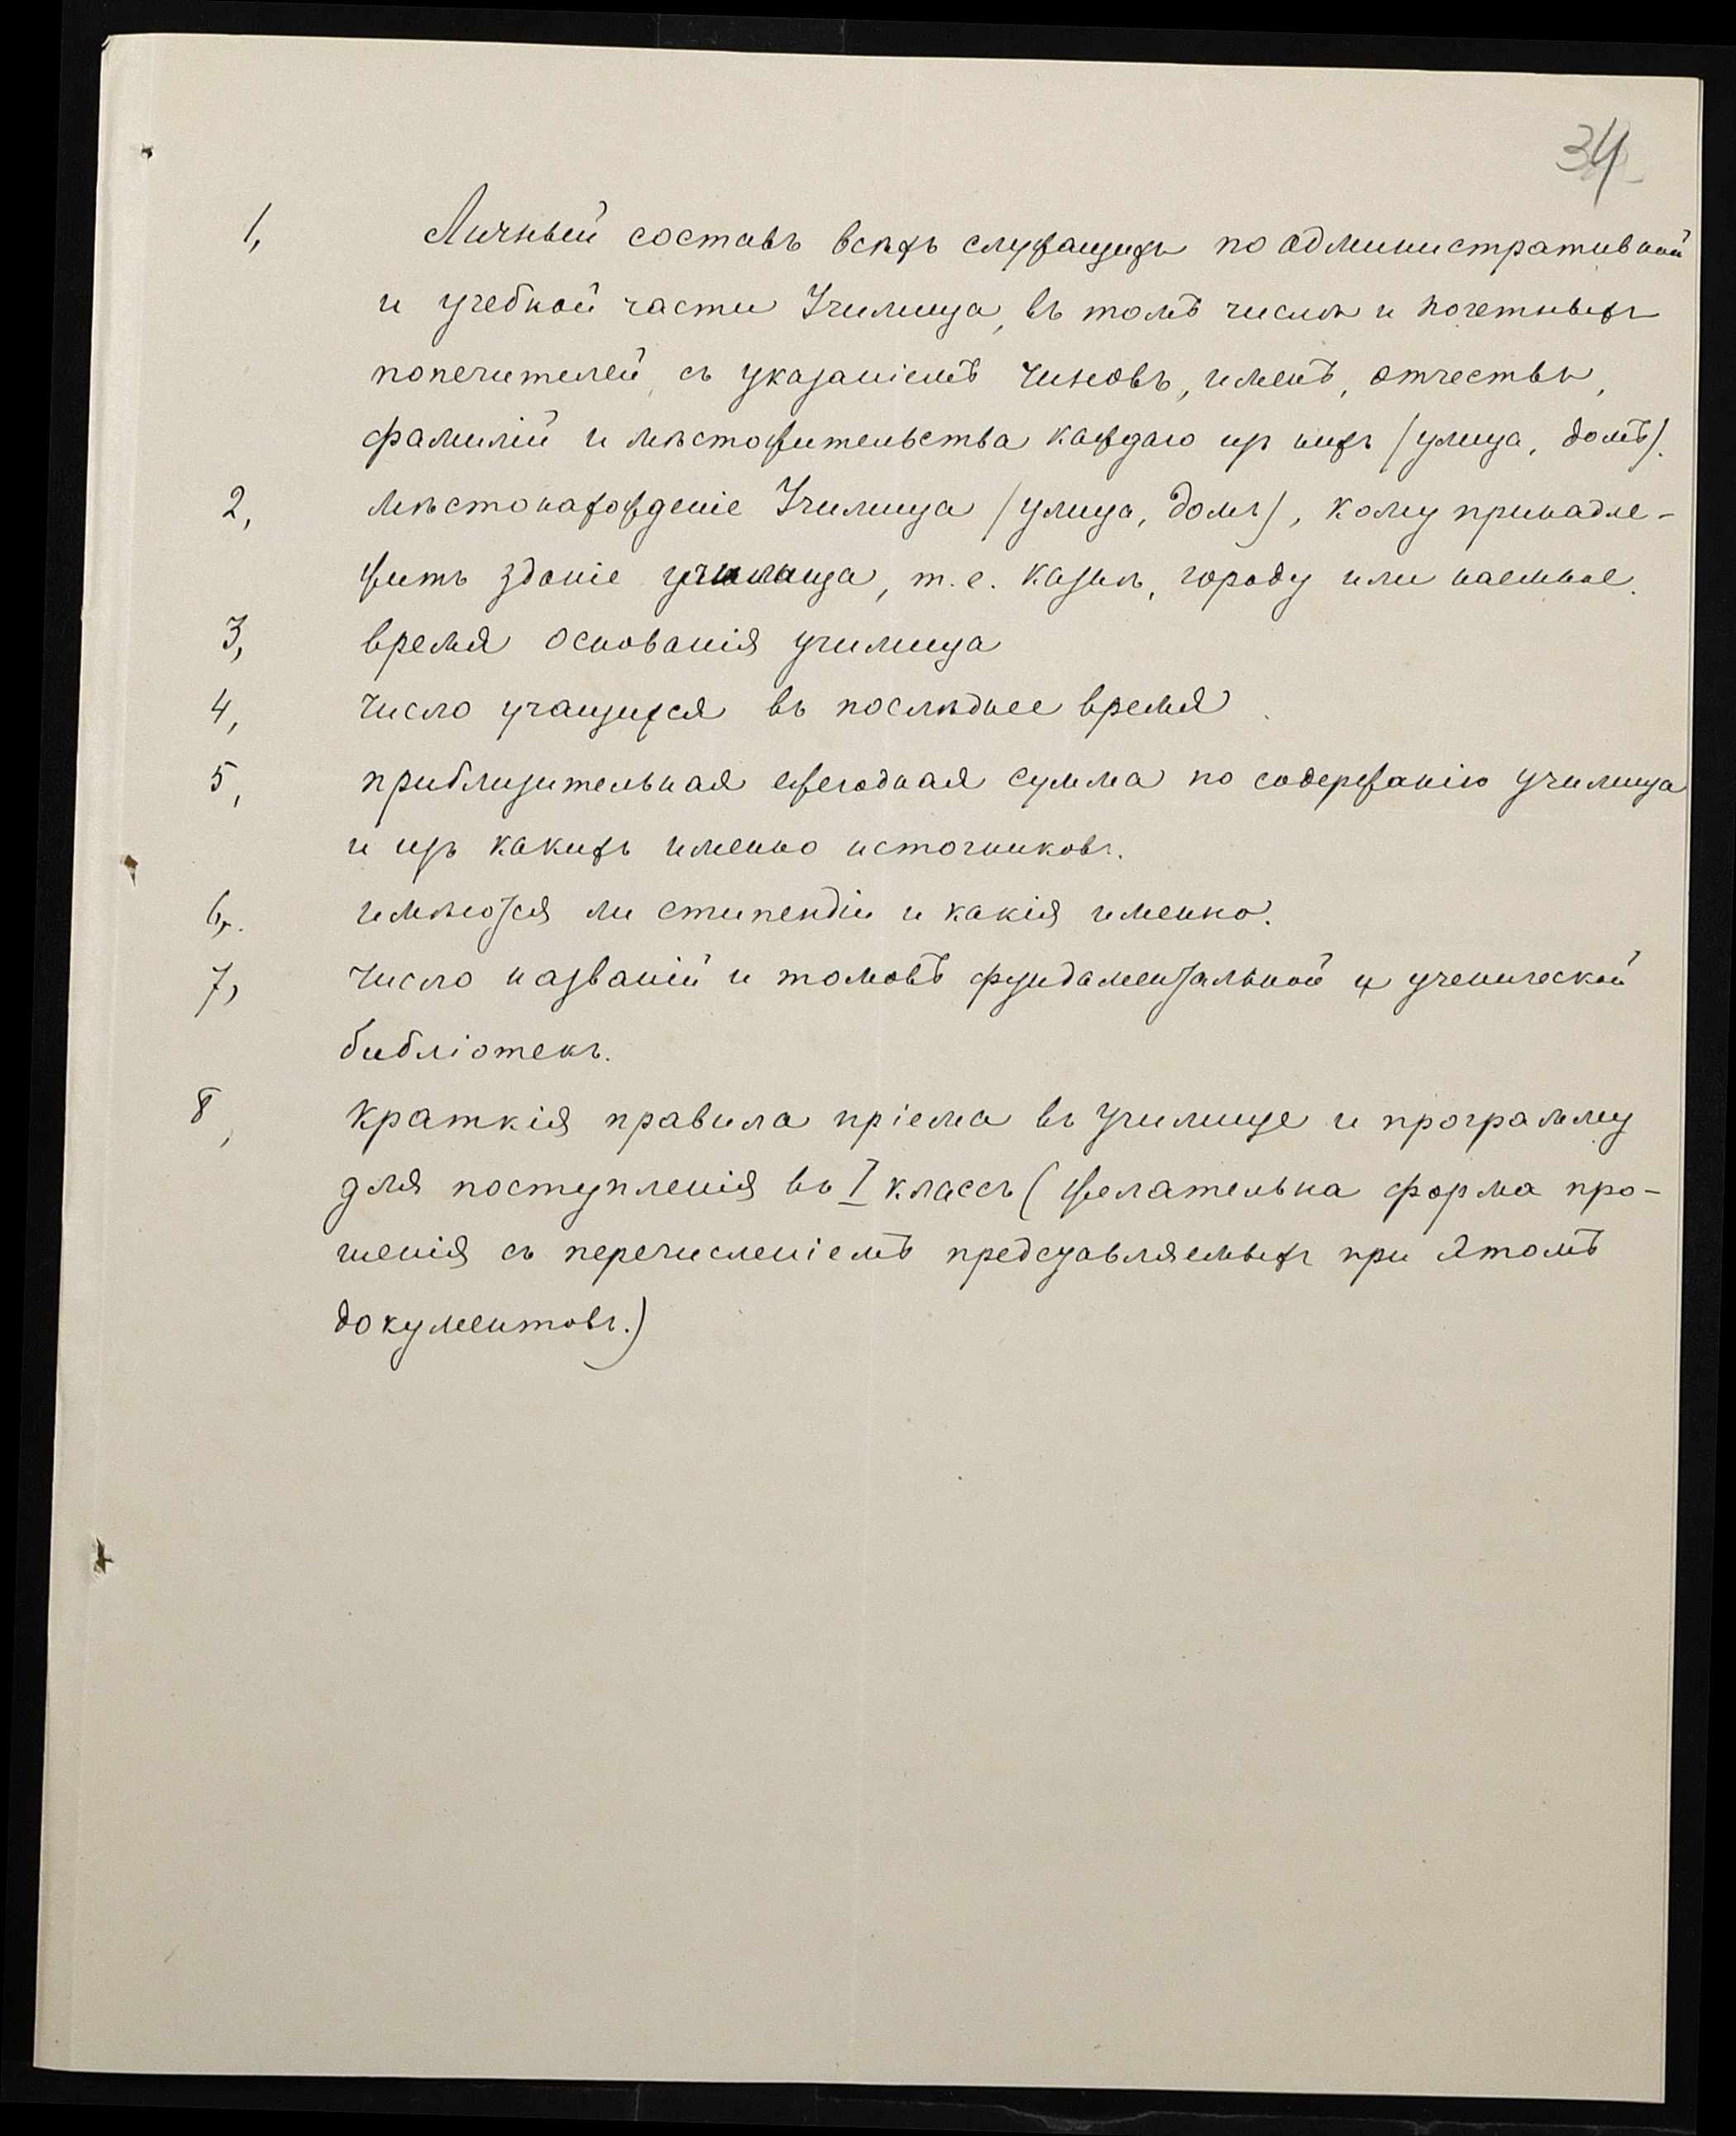 34
1, Личный составъ всѣхъ служащихъ по административной
и учебной части Училища, въ томъ числѣ и почетныхъ
попечителей, съ указаніемъ чиновъ, именъ, отчествъ,
фамилій и мѣстожительства каждаго изъ нихъ /улица, домъ/.
2, мѣстонахожденіе Училища /улица, домъ/, кому принадле-
житъ зданіе училища, т. е. казнѣ, городу или наемное.
3, время основанія училища
4, число учащихся въ послѣднее время.
5, приблизительная ежегодная сумма по содержанію училища
и изъ какихъ именно источниковъ.
6, имѣются ли стипендіи и какія именно.
7, число названій и томовъ фундаментальной и ученической
библіотекъ.
8, краткія правила пріема въ училище и программу
для поступленія въ I классъ (желательна форма про-
шенія съ перечисленіемъ представляемыхъ при этомъ
документовъ.)